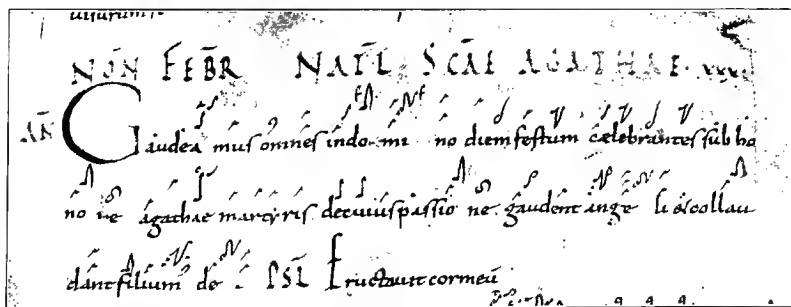 uisurum
NON FEBR NATL SCAE AGATHAE
AN Gaudea mus omnes indo mi no diem festum caelebrantes sub ho
no re agathae martyris decuius passio ne gaudent ange li &collau
dant filium de i PSL Eructauit cor meu